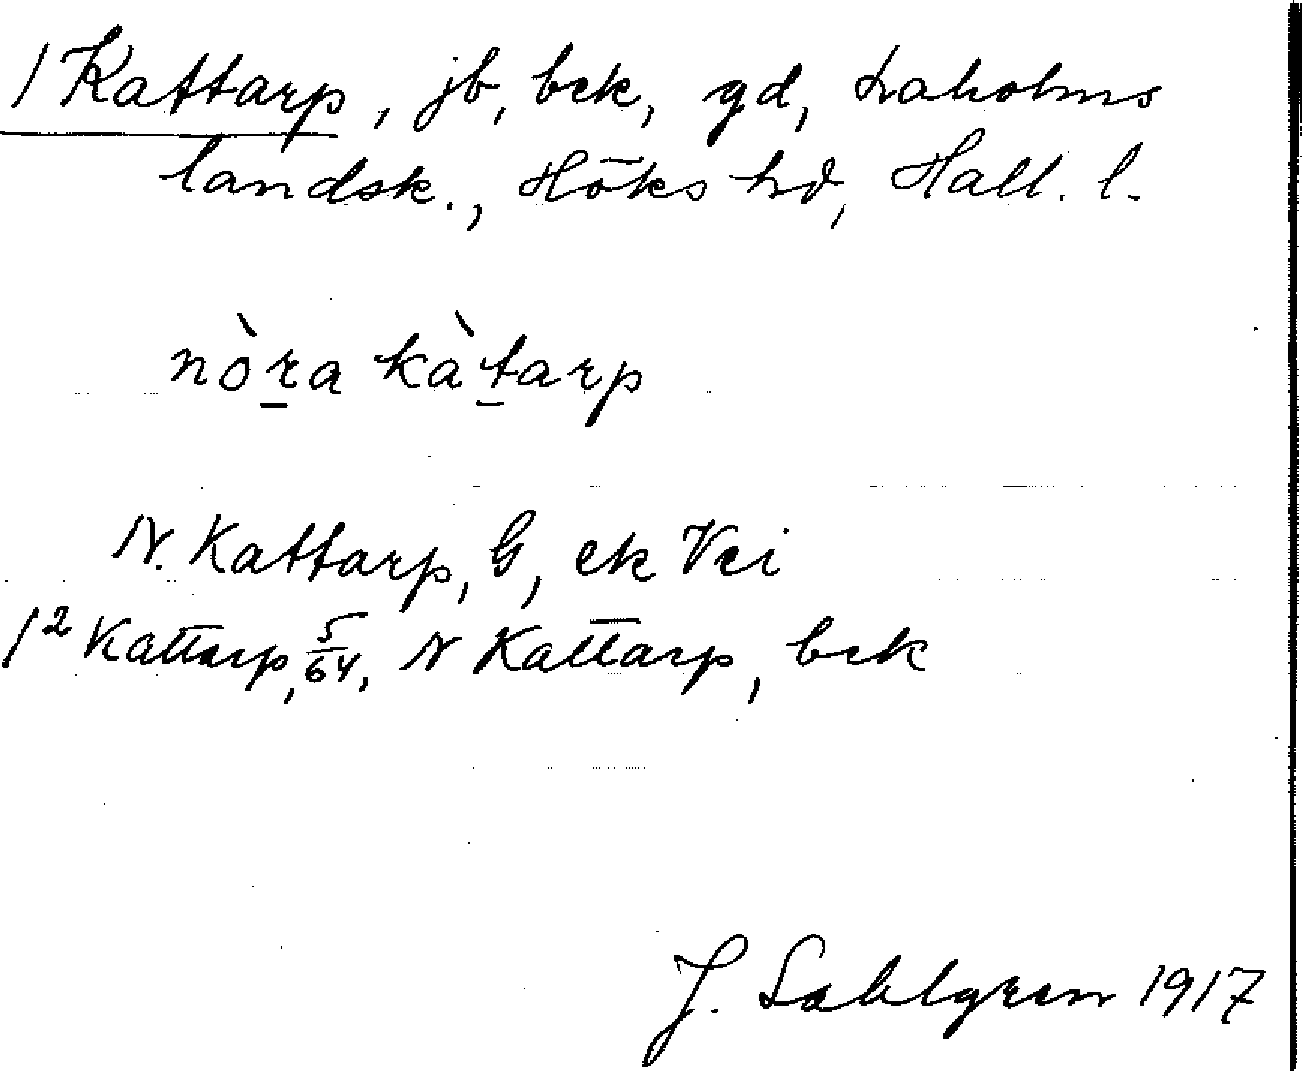 1 Kattarp, jb, bek, gd, Laholms
landsk., Höks hd, Hall. l.
nòra kàtarp
N. Kattarp, G, ek Vei
1² Kattarp, 5/64, N Kattarp, bek
J. Sahlgren 1917